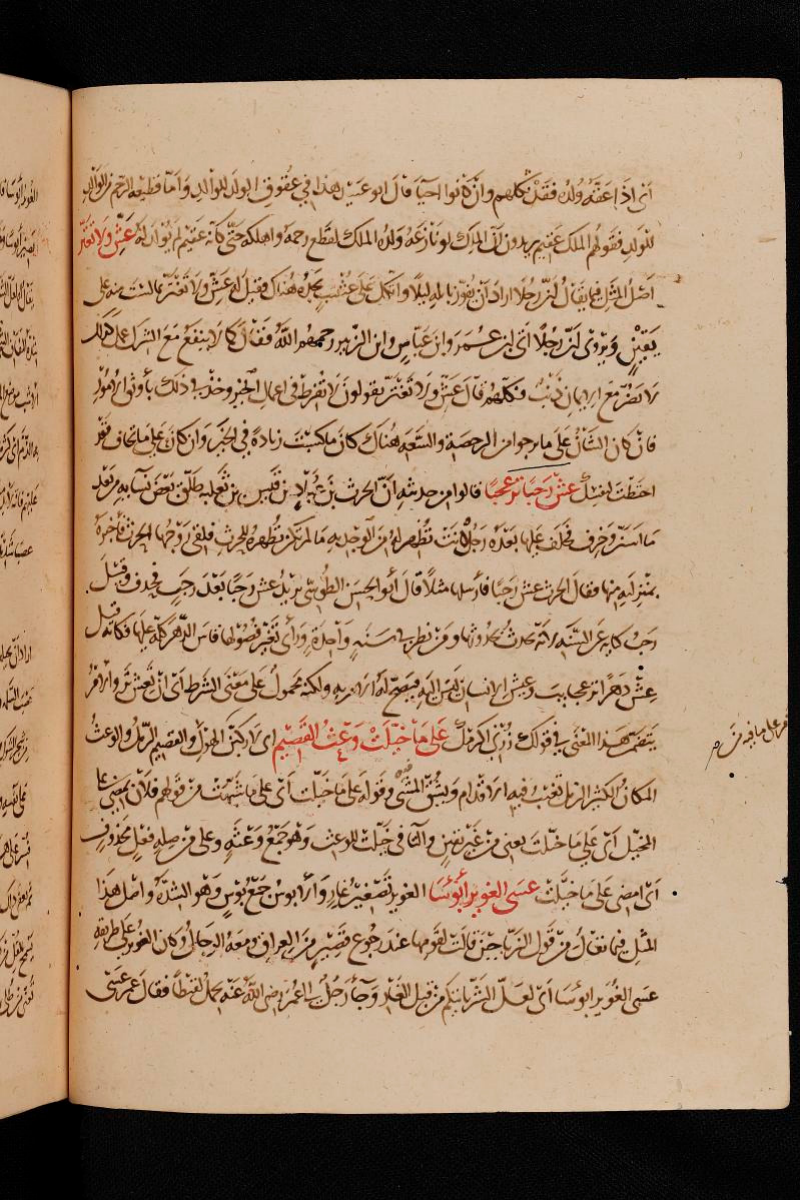 أي إذا عقه ولده فقد ثكلهم وإن كانوا أحياء قال أبو عبيد هذا في عقوق الولد للوالد وأما قطيعة الرحم من الوالد
للولد فقولهم الملك عقيم يريدون أن الملك لو نازعه ولده الملك لقطع رحمه وأهلكه حتى كأنه عقيم لم يولد له عش ولا تغتر
أصل المثل فيما يقال أن رجلا أراد أن يفوز بابله ليلا واتكل على عشب يجده هناك فقيل له عش ولا تغتر بما لست منه على
يقين ويروى أن رجلا أتى ابن عمر وابن عباس وابن الزبير رحمهم الله فقال كما لا ينفع مع الشرك عمل كذلك
لا يضر مع الايمان ذنب فكلهم قال عش ولا تغتر يقولون لا تفرط في أعمال الخير وخذ في ذلك بأوثق الأمور
فان كان الشأن على ما يرجوا من الرخصة والسعة هناك كان ما كسبت زيادة في الخير وان كان على ما تخاف فقد
احتطت لنفسك عش رجبا تر عجبا قالوا من حديثه أن الحرث بن عباد بن قيس بن ثعلبة طلق بعض نسائه من بعد
ما أسن وخرف فخلف عليها بعده رجل كانت تظهر له من الوجد به ما لم تكن تظهره للحرث فلقي زوجها الحرث فأخبره
بمنزلته منها فقال الحرث عش رجبا فأرسلها مثلا قال أبو الحسن الطوسي يريد عش رجبا بعد رجب فحذف وقيل
رجب كناية عن السنة لأنه يحدث بحدوثها ومن نظر في سنة واحدة ورأى تغير فصولها قاس الدهر كله عليها فكأنه قيل
عش دهرا تر عجايب وعيش الانسان ليس اليه فيصح له الأمر به ولكنه محمول على معنى الشرط أي ان تعش تر والأمر
يتضمن هذا المعنى في قولك زرني أكرمك على ما خيلت وعث القصيم أي لأركبن الهول والقصيم الرمل والوعث
المكان الكثير الرمل تغيب فيه الأقدام ويشق المشي فيه وقوله على ما خيلت أي على ما شبهت من قولهم فلان يمضي على
المخيل أي على ما خيلت يعني من غير يقين والتا في خيلت للوعث وهو جمع وعثة وعلى من صلة فعل محذوف
أي امضي على ما خيلت عسى الغوير أبؤسا الغوير تصغير غار والأبؤس جمع بؤس وهو الشدة وأصل هذا
المثل فيما يقال من قول الزبا حين قالت لقومها عند رجوع قصير من العراق ومعه الرجال وكان الغوير على طريقه
عسى الغوير أبؤسا أي لعل الشر يأتيكم من قبل الغار وجاء رجل الى عمر رضي الله عنه يحمل لقيطا فقال عمر عسى